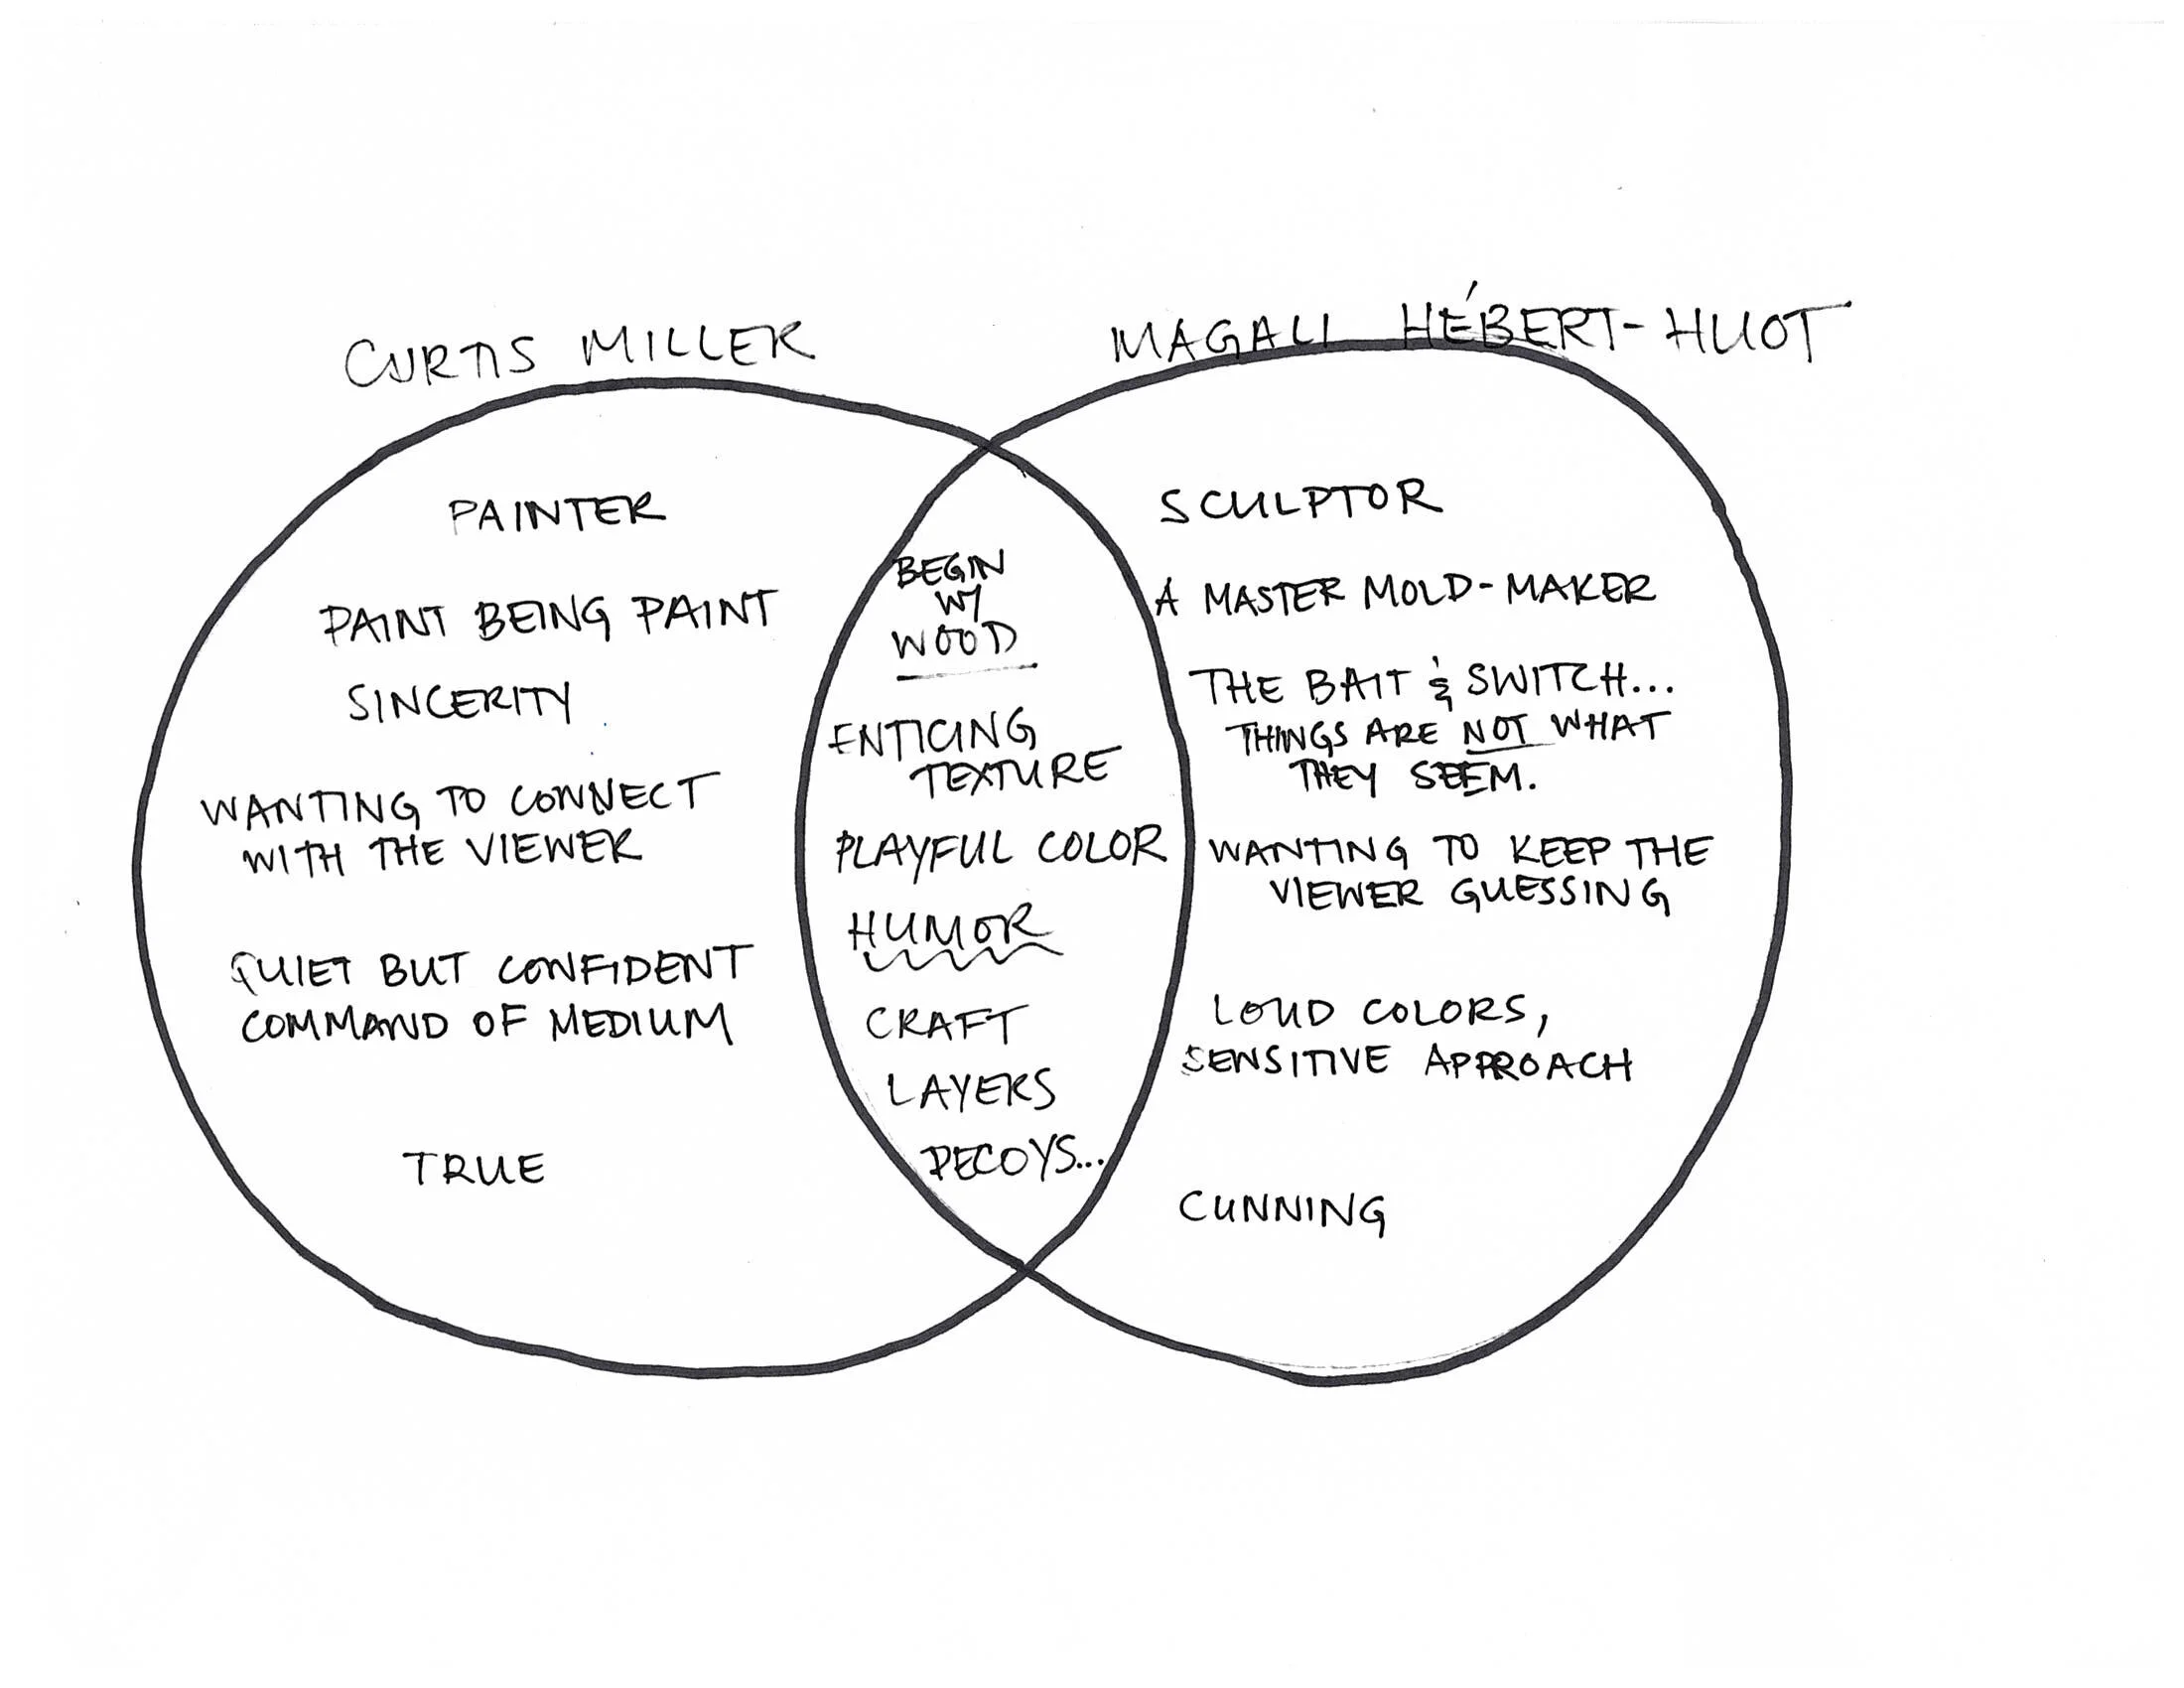 CURTIS MILLER
PAINTER
PAINT BEING PAINT
SINCERITY
WANTING TO CONNECT
WITH THE VIEWER
QUIET BUT CONFIDENT
COMMAND OF MEDIUM
TRUE
BEGIN
W/
WOOD
ENTICING
TEXTURE
PLAYFUL COLOR
HUMOR
CRAFT
LAYERS
DECOYS...
MAGALI HÉBERT-HUOT
SCULPTOR
A MASTER MOLD-MAKER
THE BAIT & SWITCH...
THINGS ARE NOT WHAT
THEY SEEM.
WANTING TO KEEP THE
VIEWER GUESSING
LOUD COLORS,
SENSITIVE APPROACH
CUNNING